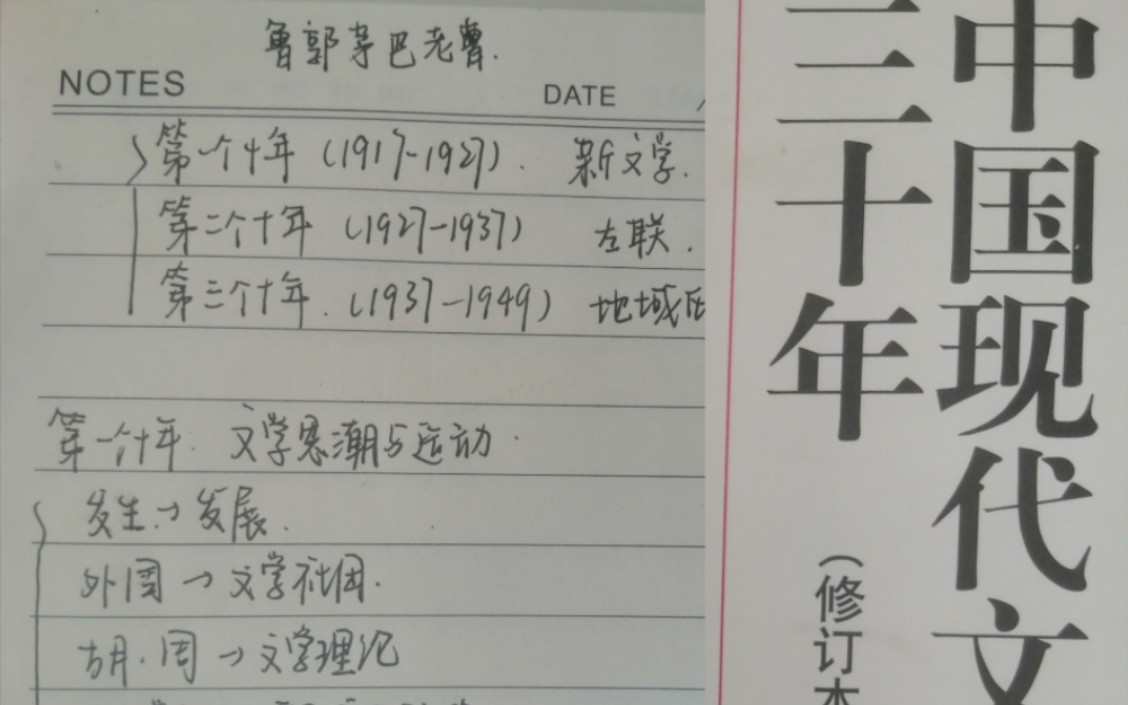 鲁郭茅巴老曹.
NOTES
DATE
第一个十年 (1917-1927). 新文学.
第二个十年 (1927-1937) 左联.
第三个十年. (1937-1949) 地域
第一个十年. 文学思潮与运动.
发生→发展.
外国→文学社团.
胡.周→文学理论
中国现代文
三十年
(修订本